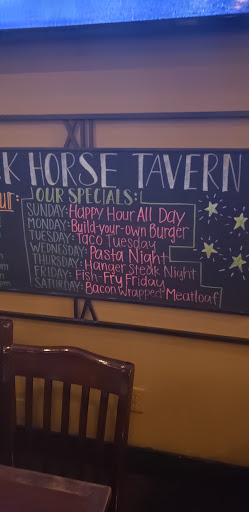 XII
CK HORSE TAVERN
OUR SPECIALS:
SUNDAY: Happy Hour All Day
MONDAY: Build-your-own Burger
TUESDAY: Taco Tuesday
WEDNESDAY: Pasta Night
THURSDAY: Hanger Steak Night
FRIDAY: Fish-Fry Friday
SATURDAY: Bacon Wrapped Meatloaf